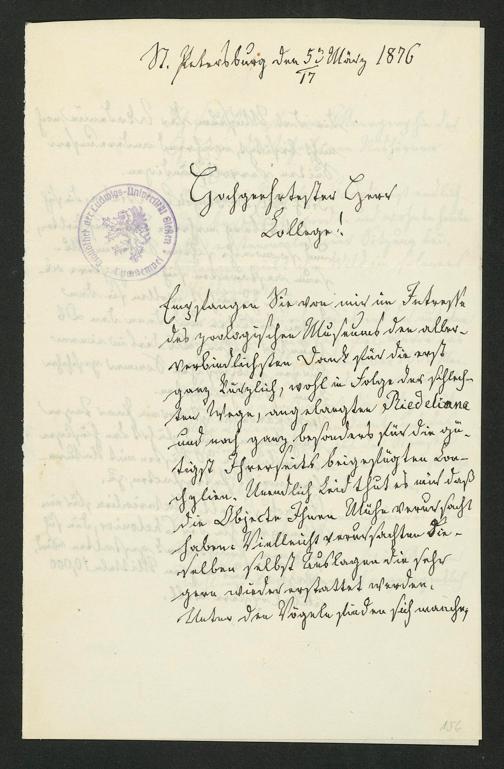 St. Petersburg den 5/17 März 1876
Hochgeehrtester Herr
College!
Empfangen Sie von mir im Intresse
des zoologischen Museums den aller-
verbindlichsten Dank für die erst
ganz kürzlich, wohl in Folge der schlech-
ten Wege, angelangten Riedeliana
und noch ganz besonders für die gü-
tigst Ihrerseits beigefügten Con-
chylien. Unendlich Leid thut es mir daß
die Objecte Ihnen Mühe verursacht
haben. Vielleicht verursachten die-
selben selbst Auslagen die sehr
gern wieder erstattet werden.
Unter den Vögeln finden sich manche,
156